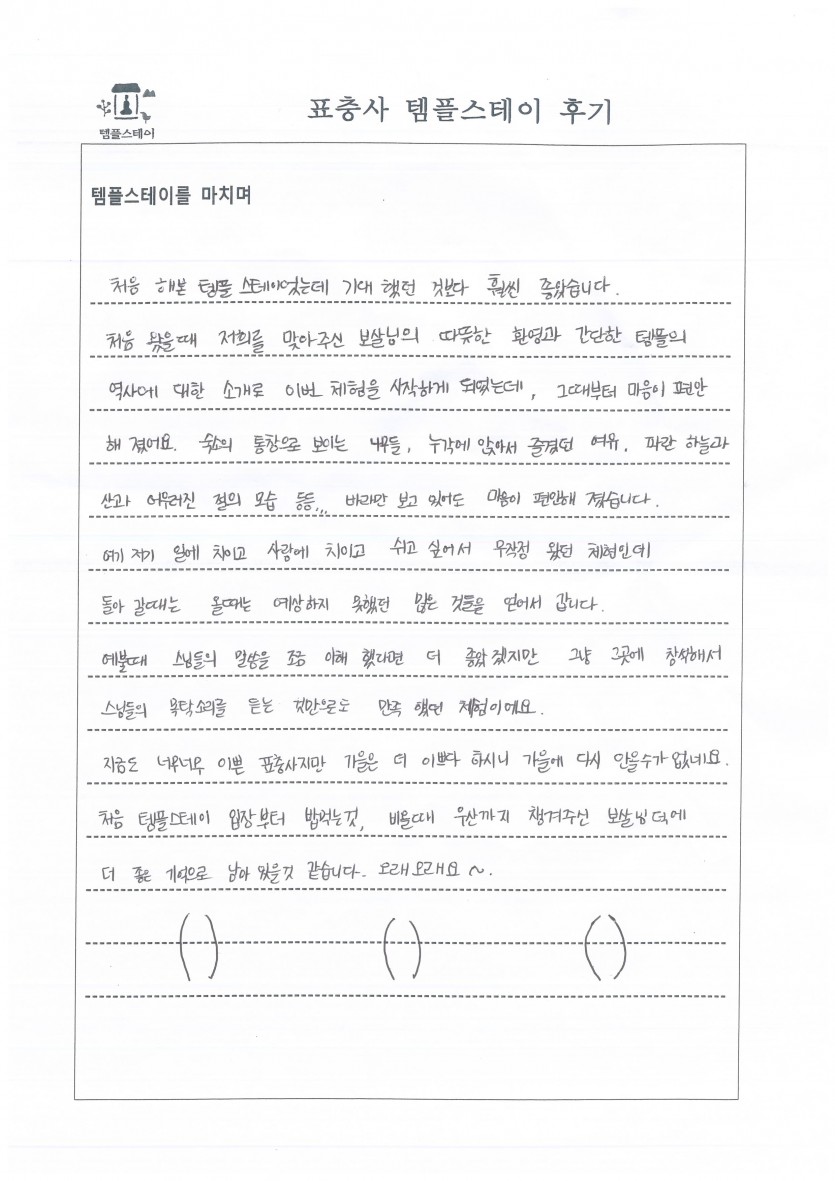 템플스테이
표충사 템플스테이 후기
템플스테이를 마치며
처음 해본 템플 스테이였는데 기대 했던 것보다 훨씬 좋았습니다.
처음 왔을때 저희를 맞아주신 보살님의 따뜻한 환영과 간단한 템플의
역사에 대한 소개로 이번 체험을 시작하게 되었는데, 그때부터 마음이 편안
해 졌어요. 숙소의 통창으로 보이는 나무들, 누각에 앉아서 즐겼던 여유, 파란 하늘과
산과 어우러진 절의 모습 등등,,, 바라만 보고 있어도 마음이 편안해 졌습니다.
여기 저기 일에 치이고 사랑에 치이고 쉬고 싶어서 무작정 왔던 체험인데
돌아 갈때는 올때는 예상하지 못했던 많은 것들을 얻어서 갑니다.
예불때 스님들의 말씀을 조금 이해 했더라면 더 좋았겠지만 그냥 그곳에 참석해서
스님들의 목탁소리를 듣는 것만으로도 만족 했던 체험이에요.
지금도 너무너무 이쁜 표충사지만 가을은 더 이쁘다 하시니 가을에 다시 안올수가 없네요.
처음 템플스테이 입장부터 밥먹는것, 비올때 우산까지 챙겨주신 보살님 덕에
더 좋은 기억으로 남아 있을것 같습니다. 오래오래요 ~.
( ) ( ) ( )